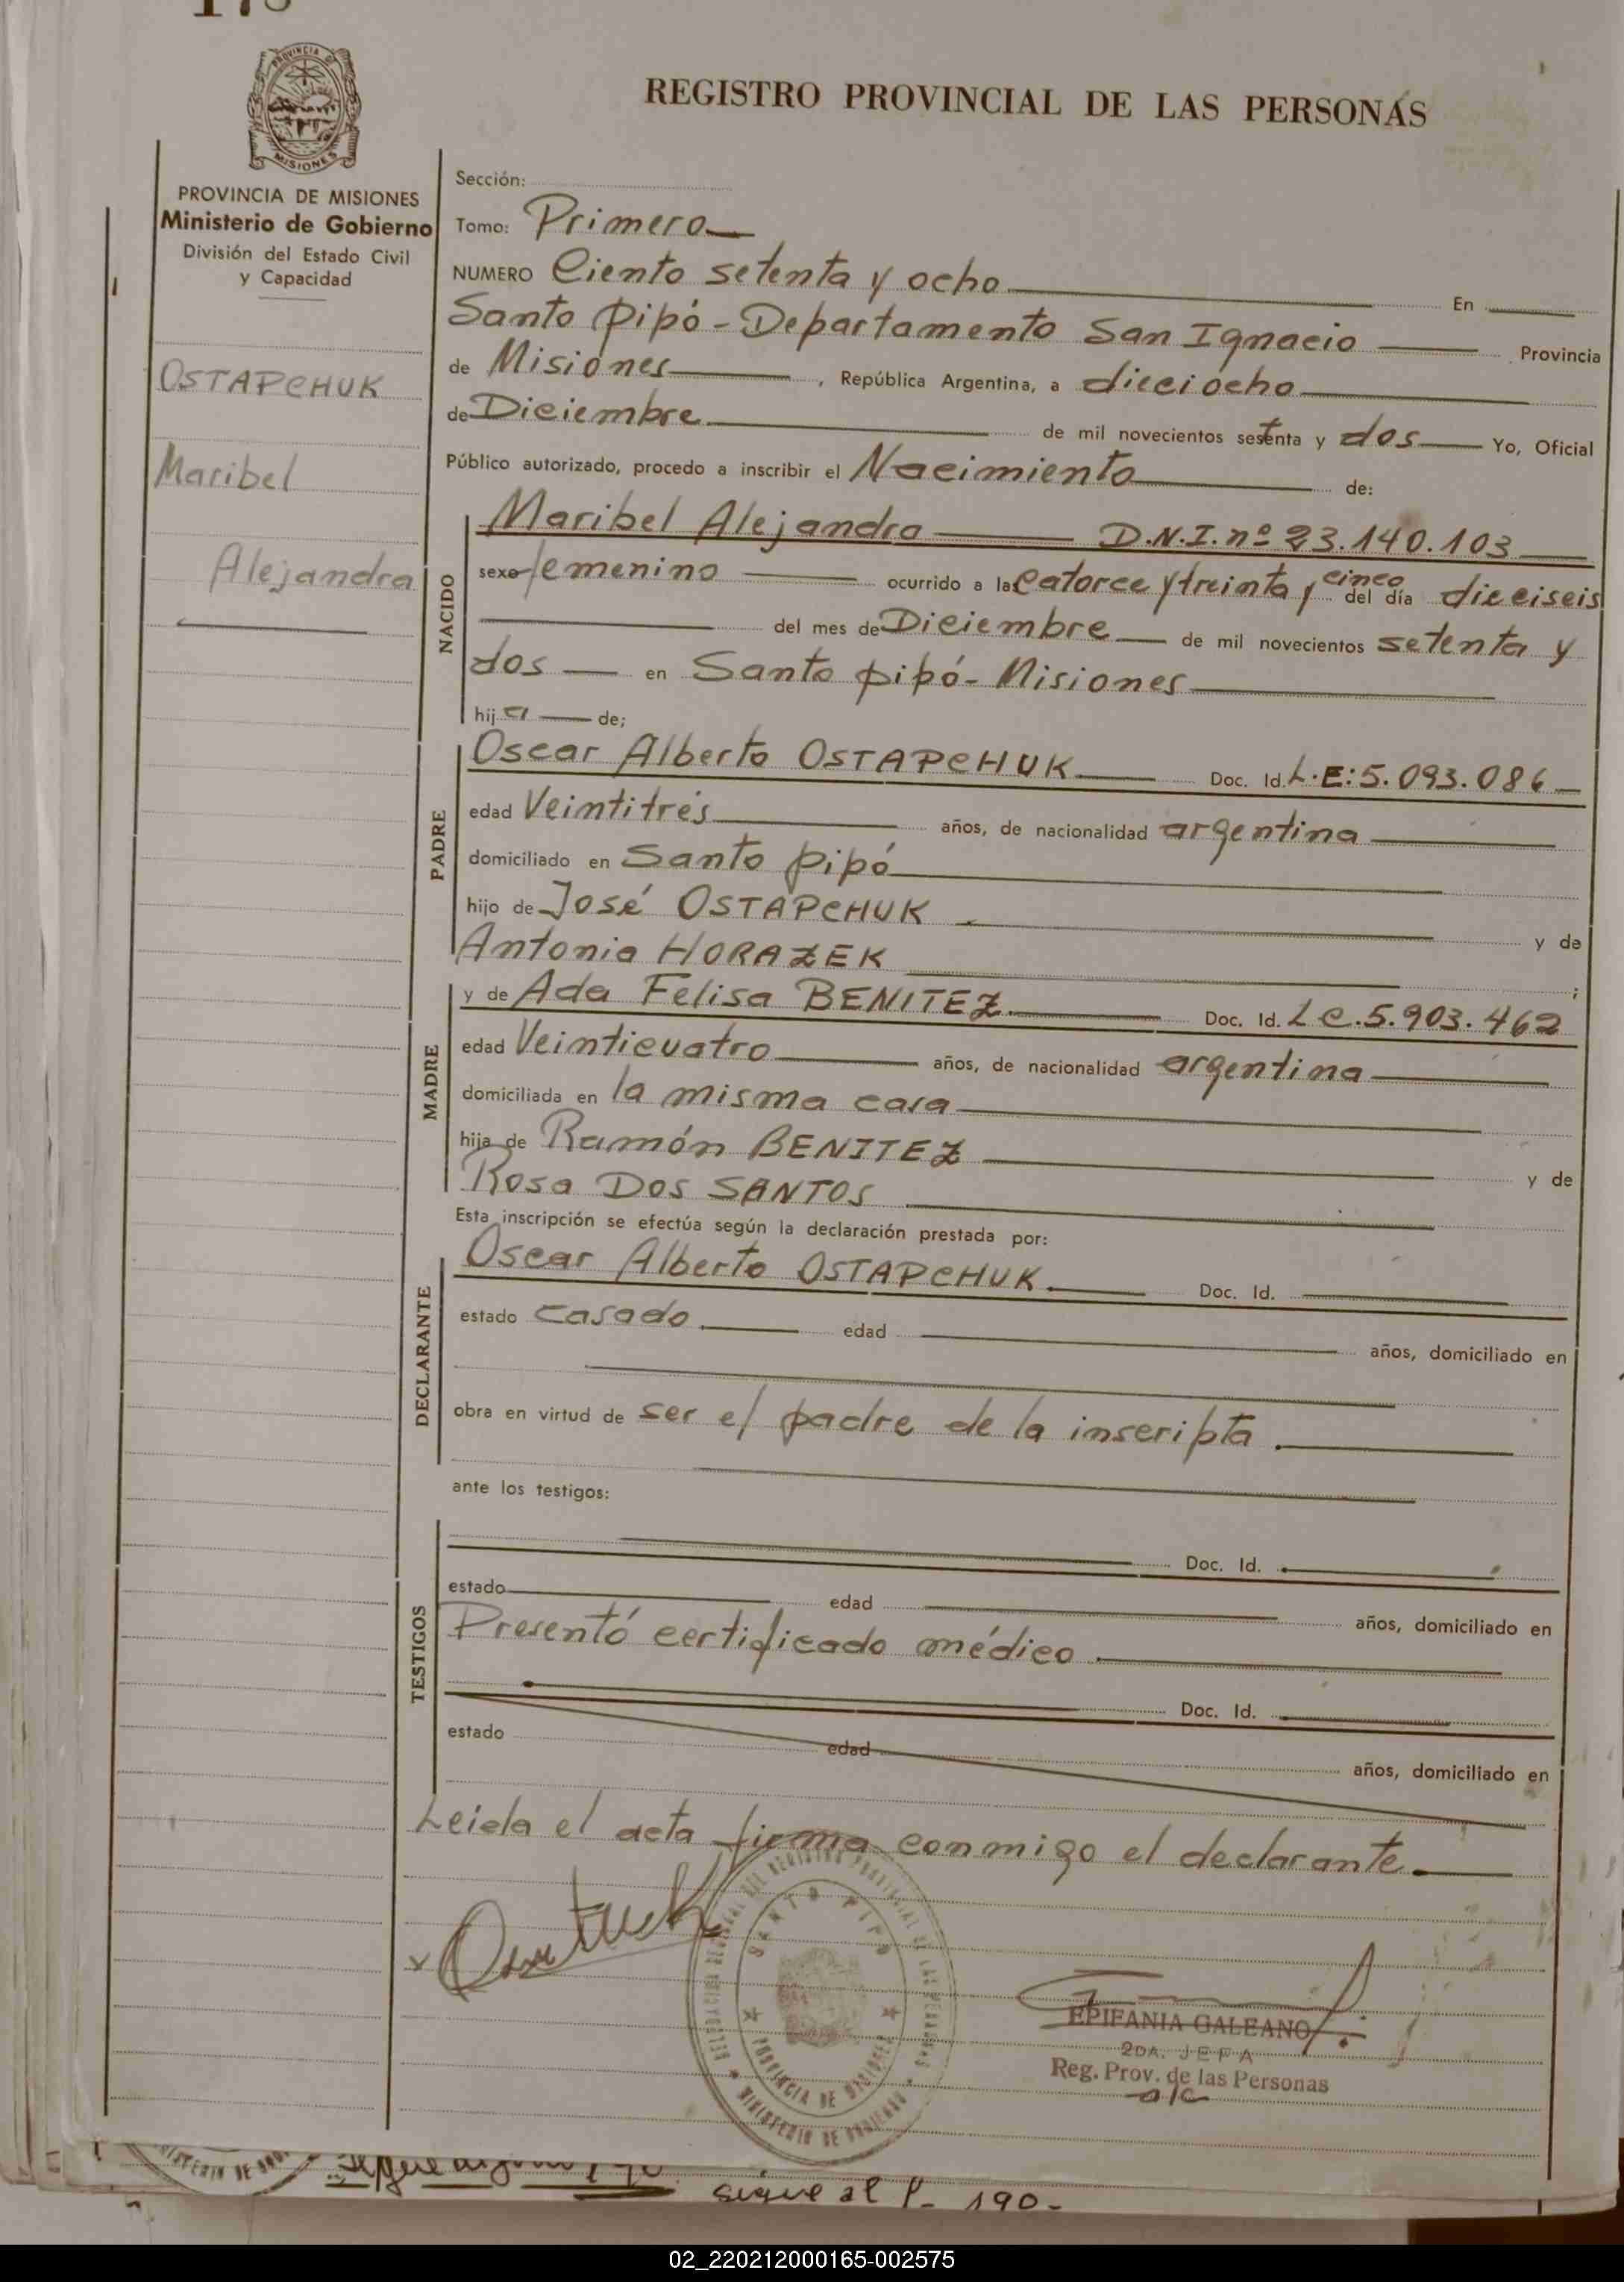 REGISTRO PROVINCIAL DE LAS PERSONAS
PROVINCIA DE
MISIONES
PROVINCIA DE MISIONES
Ministerio de Gobierno
División del Estado Civil
y Capacidad
OSTAPCHUK
Maribel
Alejandra
Sección:
Tomo: Primero
NUMERO Ciento setenta y ocho En
Santo Pipó - Departamento San Ignacio Provincia
de Misiones, República Argentina, a dieciocho
de Diciembre de mil novecientos setenta y dos Yo, Oficial
Público autorizado, procedo a inscribir el Nacimiento de:
NACIDO
Maribel Alejandra D.N.I. nº 23.140.103
sexo femenino ocurrido a las catorce y treinta y cinco del día dieciseis
del mes de Diciembre de mil novecientos setenta y
dos en Santo Pipó - Misiones
hija de;
PADRE
Oscar Alberto OSTAPCHUK Doc. Id. L.E: 5.093.086
edad Veintitrés años, de nacionalidad argentina
domiciliado en Santo Pipó
hijo de José OSTAPCHUK y de
Antonia HORAZEK ;
MADRE
y de Ada Felisa BENITEZ Doc. Id. L C. 5.903.462
edad Veinticuatro años, de nacionalidad argentina
domiciliada en la misma casa
hija de Ramón BENITEZ y de
Rosa DOS SANTOS
Esta inscripción se efectúa según la declaración prestada por:
DECLARANTE
Oscar Alberto OSTAPCHUK Doc. Id.
estado casado edad años, domiciliado en
obra en virtud de ser el padre de la inscripta.
ante los testigos:
TESTIGOS
Doc. Id.
estado edad años, domiciliado en
Presentó certificado médico
Doc. Id.
estado edad años, domiciliado en
Leida el acta firma conmigo el declarante.
SANTO PIPO
PROVINCIA DE MISIONES
MINISTERIO DE GOBIERNO
EPIFANIA GALEANO
2DA. JEFA
Reg. Prov. de las Personas
a/c
sigue al f- 190-
02_220212000165-002575